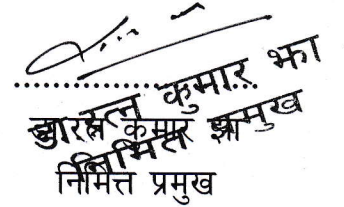 रत्न कुमार झा
निमित्त प्रमुख
कुमार झा
निमित्त प्रमुख